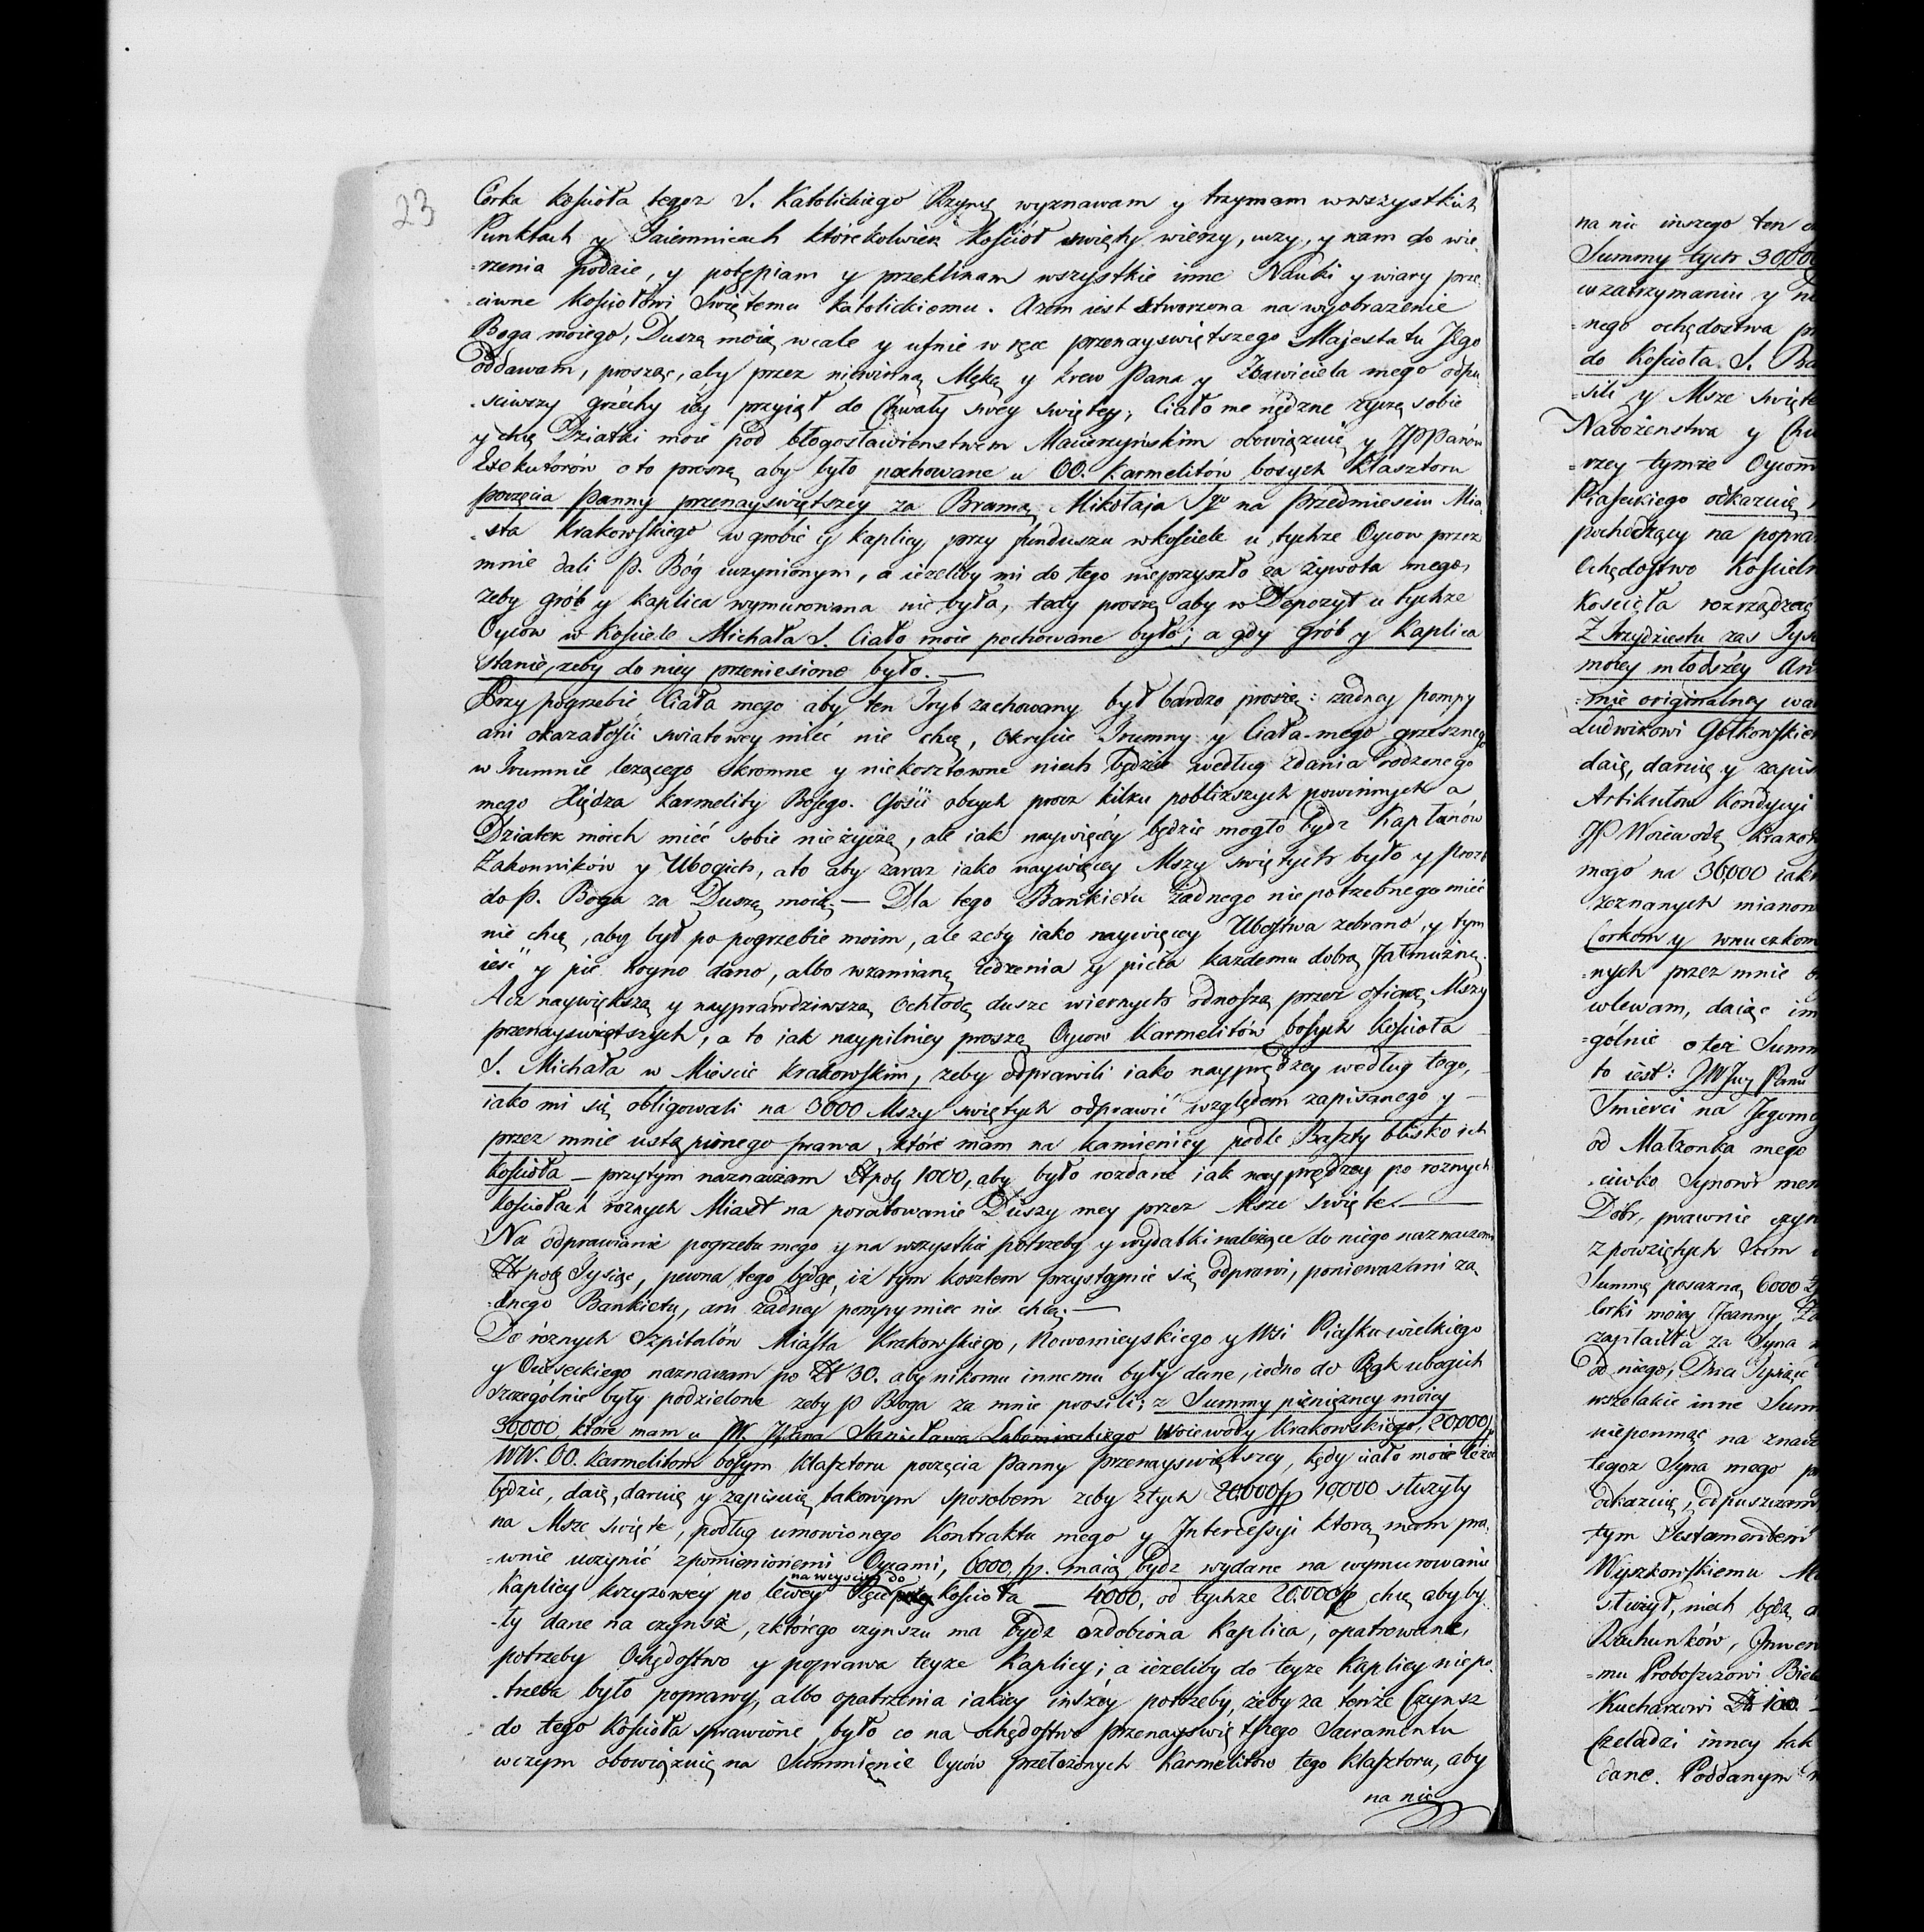 23
Córka kościoła tegoz S. Katolickiego Rzym. wyznawam y trzymam wwszystkich
Punktach y Taiemnicach którekolwiek kościoł swięty wierzy, uczy, y nam do wie-
-rzenia podaie, y potępiam y przeklinam wszystkie inne Nauki y wiary prze-
-ciwne kościołowi Swiętemu katolickiemu. Azem iest stworzona na wyobrazenie
Boga moiego, Duszę moię wcale y ufnie w ręce przenayswiętszego Majestatu Jego
oddawam, prosząc, aby przez niewinną Mękę y krew Pana y Zbawiciela mego odpu-
-sciwszy grzechy iey przyiął do Chwały swey swiętey; Ciało me nędzne zyczę sobie
y chcę Dziatki moie pod błogosławieństwem Macierzyńskim obowięzuię y JPPanów
Exekutorów o to proszę aby było pochowane u OO. Karmelitów bosych Klasztoru
poczęcia Panny przenayswiętszey za Bramą Mikołaja Sgo na Przedmiesciu Mia-
-sta Krakowskiego w grobie y kaplicy przy funduszu wkościele u tychze Oycow przez
mnie dali P. Bóg uczynionym, a iezeliby mi do tego nieprzyszło za żywota mego,
zeby grób y kaplica wymurowana nie była, tedy proszę aby w Depozyt u tychze
Oyców w kościele Michała S. Ciało moie pochowane było; a gdy grób y kaplica
stanie, zeby do niey przeniesione było. —
Przy pogrzebie Ciała mego aby ten Tryb zachowany był bardzo proszę: zadney pompy
ani okazałości swiatowey mieć nie chcę, Okrycie Trumny y Ciała mego grzesznego
w Trumnie lezącego skromne y niekosztowne niech będzie według zdania rodzonego
mego Xiędza Karmelity Bosego. Gości obcych procz kilku pobliższych powinnych a
Dziatek moich mieć sobie nieżyczę, ale iak naywięcey będzie mogło bydz Kapłanów
Zakonników y Ubogich, a to aby zaraz iako naywięcey Mszy swiętych było y prozb
do P. Boga za Duszę moię; — Dla tego Bankietu Żadnego niepotrzebnego mieć
nie chcę, aby był po pogrzebie moim, ale zeby iako naywięcey Ubostwa zebrano, y tym
ieść y pić hoyno dano, albo wzamianę iedzenia y picia kazdemu dobrą Jałmużnę.
Acz naywiększą y nayprawdziwszą Ochłodę dusze wiernych odnoszą przez ofiarę Mszy
przenayswiętszych, a to iak naypilniey proszę Oycow Karmelitów bosych kościoła
S. Michała w Miescie krakowskim, zeby odprawili iako nayprędzey według tego,
iako mi się obligowali na 3000 Mszy swiętych odprawić względem zapisanego y
przez mnie ustąpionego prawa, które mam na kamienicy podle Baszty blisko ich
kościoła — przytym naznaczam Złpol. 1000, aby było rozdane iak nayprędzey po roznych
kościołach roznych Miast na poratowanie Duszy mey przez Msze swięte. —
Na odprawianie pogrzebu mego y na wszystkie potrzeby y wydatki należące do niego naznaczam
Zł pol. Tysiąc, pewna tego będąc, iz tym kosztem przystoynie się odprawi, poniewaz ani za-
-dnego Bankietu, ani żadney pompy miec nie chcę. —
Do róznych Szpitalów Miasta Krakowskiego, Nowomieyskiego y Wsi Piasku wielkiego
y naznaczam po Zł 30. aby nikomu innemu były dane, iedno do Rąk ubogich
szczególnie były podzielone zeby P Boga za mnie prosili; z Summy pieniężney moiey
30,000, które mam u JW. JPana Stanisława Lubomirskiego Woiewody Krakowskiego, 20,000 fp
WW. OO. Karmelitom bosym klasztoru poczęcia Panny przenayswiętszey, kędy ciało moie leżeć
będzie, daię, daruię y zapisuię takowym sposobem zeby ztych 20,000 fp 10,000 słuzyły
na Msze swięte, podług umowionego Kontraktu mego y Intercessyi ktorą mam pra-
-wnie uczynić zpomienionemi Oycami, 6000 fp. maią bydz wydane na wymurowanie
Kaplicy krzyzowey po lewey Ręce na weyściu do kościoła — 4000, od tychze 20.000 fp chcę aby by-
-ły dane na czynsz, zktórego czynszu ma bydz ozdobiona Kaplica, opatrowane,
potrzeby Ochędostwo y poprawa teyze Kaplicy; a iezeliby do teyze kaplicy niepo-
-trzeba było poprawy, albo opatrzenia iakiey inszey potrzeby, żeby za tenże Czynsz
do tego Kościoła sprawione było co na ochędostwo przenayswiętszego Sacramentu
wczym obowięzuię na Summienie Oyców przełożonych Karmelitów tego klasztoru, aby
na nic
na nic inszego ten
Summy tych 30,000
wzatrzymaniu y
-nego ochędostwa
do Kościoła S.
-sili y Msze swięte
Nabożenstwa y
-rzey tymże Oycom
Piaseckiego odkazuię
pochodzący na popra
Ochędostwo Kościeln
Kościoła rozrządzać
Z Trzydziestu zas Tys
moiey młodszey
-mie originalney
Ludwikowi Gołkowskie
daię, daruię y zapis
Artikułow Kondycyi
JP Woiewodę Krako
mego na 36,000 iak
zeznanych mianow
Corkom y wnuczkom
-nych przez mnie
wlewam, daiąc im
-gólnie o też Summ
to iest: Panu
Smierci na Jegomo
od Małzonka mego
-ciwko Synowi mem
Dóbr, prawnie czyn
z powziętych
Summę posazną 6000
Corki moiey Joanny
zapłaciła za Syna
od niego, Dwa Tysiące
wszelakie inne Sum
niepomnąc na znacz
tegoz Syna mego
odkazuię, odpuszczam
tym Testamentem
Wyszkowskiemu
słuzył, niech będą
Rachunków, Inwen
-mu Proboszczowi
Kucharzowi Zł 100. —
Czeladzi inney tak
dane. Poddanym